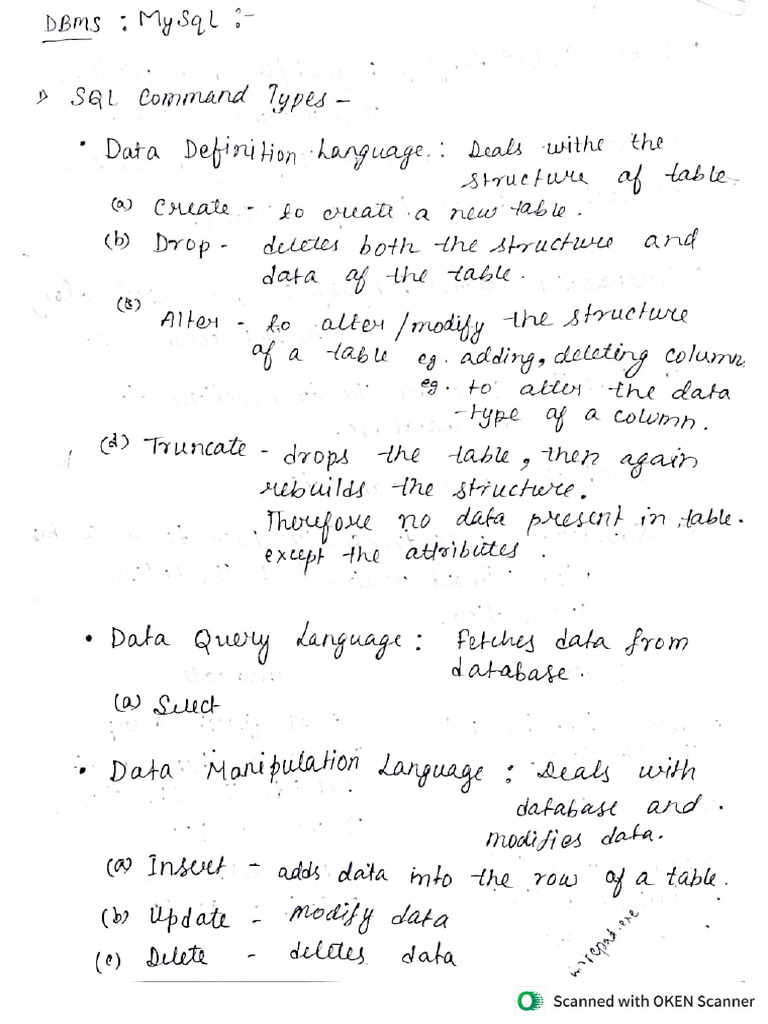 DBMS : MySql :-
1) SQL Command Types -
• Data Definition Language : Deals withe the
structure of table
(a) Create - to create a new table.
(b) Drop - deletes both the structure and
data of the table.
Alter - to alter/modify the structure
of a table eg. adding, deleting column
eg. to alter the data
-type of a column.
(d) Truncate - drops the table, then again
rebuilds the structure.
Therefore no data present in table.
except the attributes.
• Data Query Language : Fetches data from
database.
(a) Select
• Data Manipulation Language : Deals with
database and
modifies data.
(a) Insert - adds data into the row of a table.
(b) Update - modify data
(c) Delete - deletes data
Scanned with OKEN Scanner